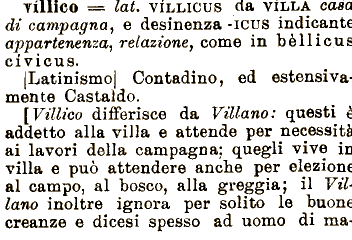 víllico = lat. VÍLLICUS da VÍLLA casa
di campagna, e desinenza -ICUS indicante
appartenenza, relazione, come in bèllicus
cívicus.
|Latinismo] Contadino, ed estensiva-
mente Castaldo.
[Villico differisce da Villano: questi è
addetto alla villa e attende per necessità
ai lavori della campagna; quegli vive in
villa e può attendere anche per elezione
al campo, al bosco, alla greggia; il Vil-
lano inoltre ignora per solito le buone
creanze e dicesi spesso ad uomo di ma-